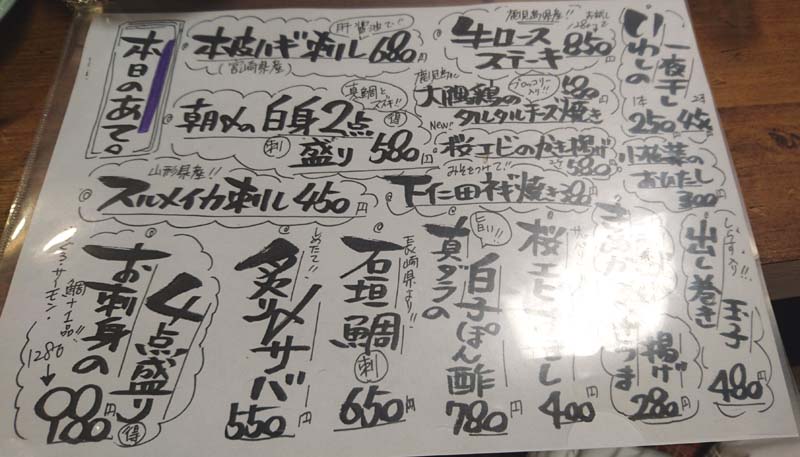 本日のあて。
肝醤油で!
本皮ハギ刺し 680円
(宮崎県産)
真鯛と
スズキ!!
朝〆の白身2点
盛り 580円
刺
得
山形県産!!
スルメイカ刺し 450円
鹿児島県産!!
牛ロース
ステーキ 850円
鹿児島
ブロッコリー
入り!!
大隅鶏の
タルタルチーズ焼き
580円
New!
桜エビのかき揚げ
580円
みそをつけて!!
下仁田ネギ焼き
いわしの
一夜干し
1本
250円
2本
450円
小松菜の
おひたし
300円
しらす入り!!
出し巻き
玉子
480円
揚げ
280円
桜エビ
400円
旨い!!
真ダラの
白子ぽん酢
780円
長崎県より!!
石垣鯛
刺
650円
しめたて!!
炙り〆サバ
550円
お刺身の
4点盛り
得
鯛+1品!!
まぐろ・サーモン・
1280
↓
980円